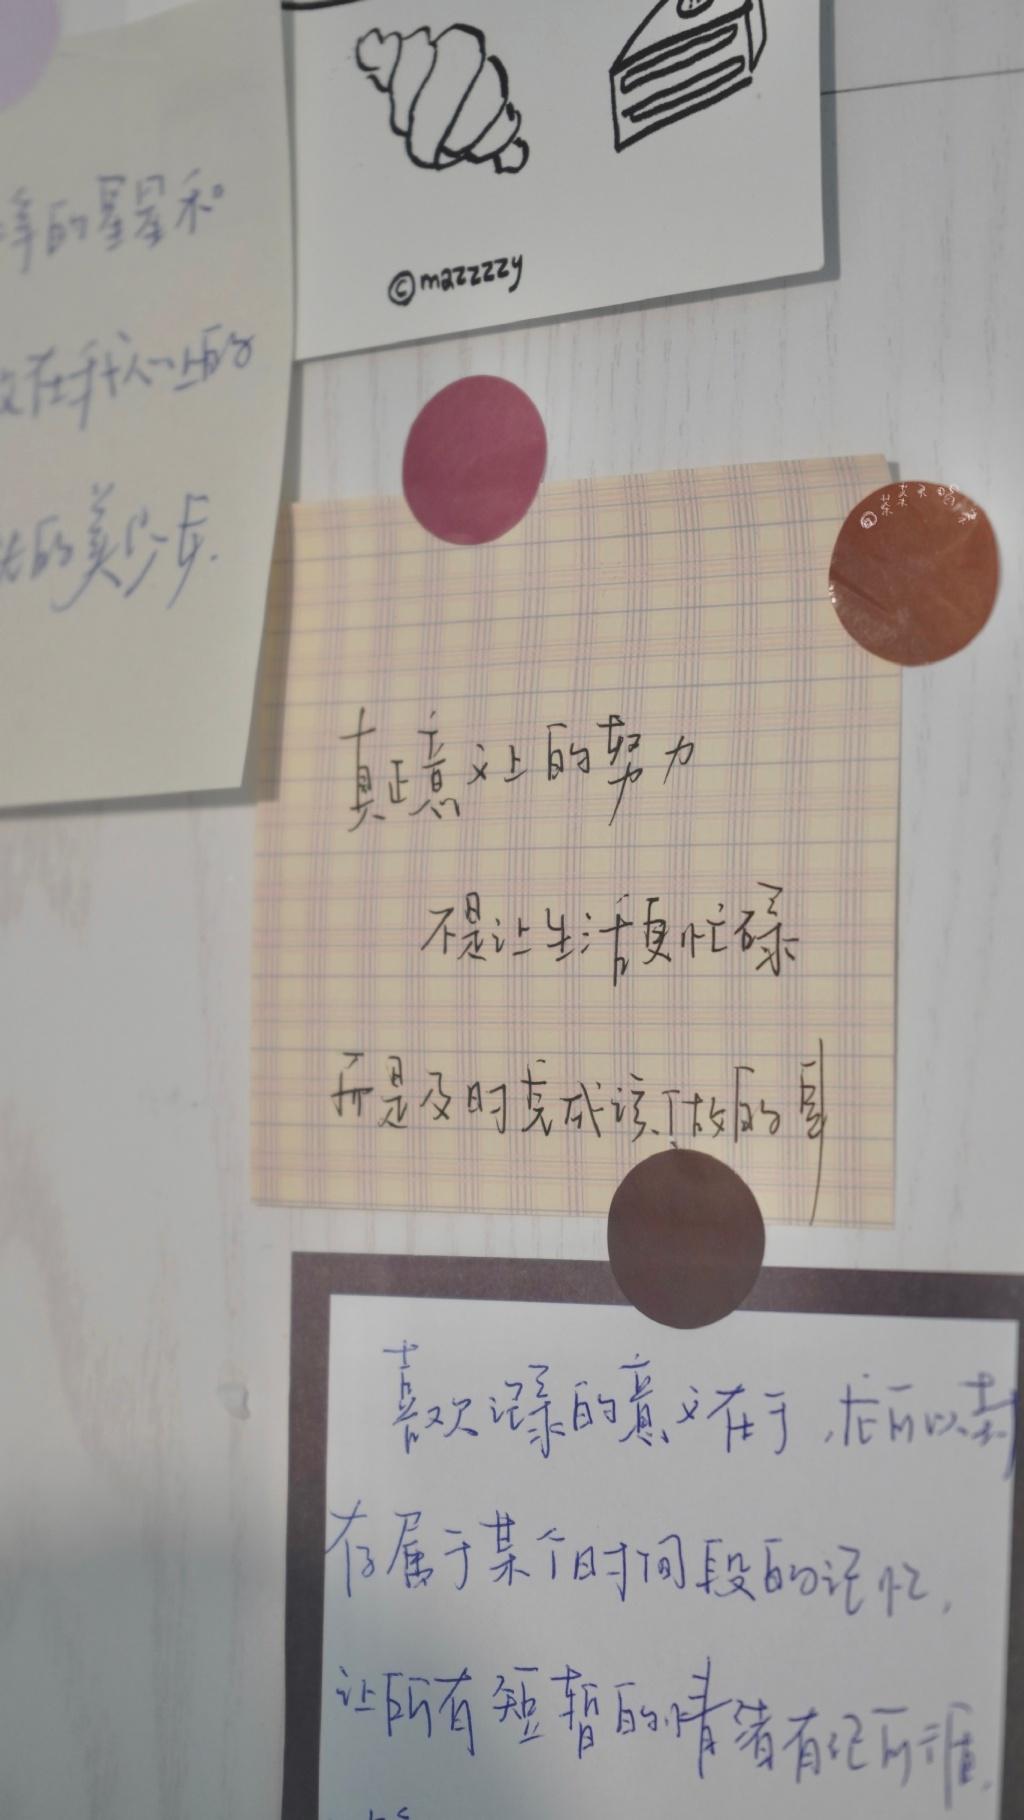 的星星和
在我心上的
的美少年.
©mazzzzy
真正意义上的努力
不是让生活更忙碌
而是及时完成该做的事
喜欢记录的意义在于,
存属于某个时间段的记忆,
让所有短暂的情绪有记所